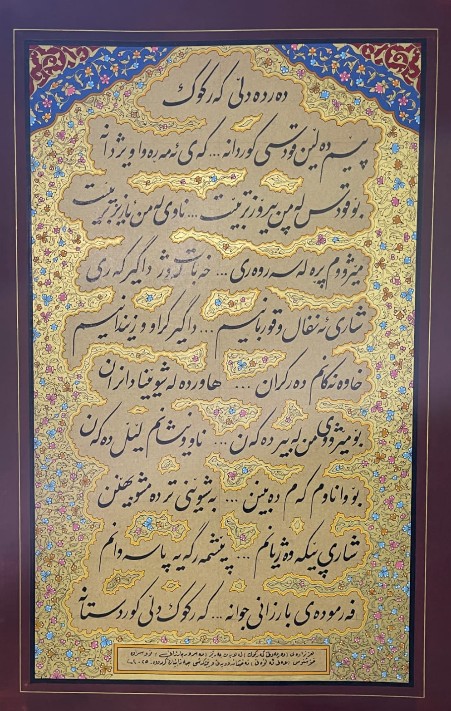 دەردە دلێ کەرکوک
پێم دەلێن قودسی کوردانە... کەی ئەمەرەوا ویژدانە
بۆ قودس لەمن پیرۆزتربێت ... ناوی لەمن بابەرزتربێت
مێژووم پرە لەسەروەری ... خەبات لەدژ داگیرکەری
شاری ئەنفال وقوربانیم ... داگیرکراو و زیندانیم
خاوەنەکانم دەرکران .... هاوردە لەشوێنیا دانران
بۆ مێژووی من لەبیردەکەن ... ناوونیشانم لێل دەکەن
بۆ وا ناوم کەم دەبین .... بەشوێنی تر دەشوبهێنن
شاری پێکەوەژیانم .... پێشمەرگەیە پاسەوانم
فەرمودەی بارزانی جوانە... کەرکوک دلێ کوردستانە